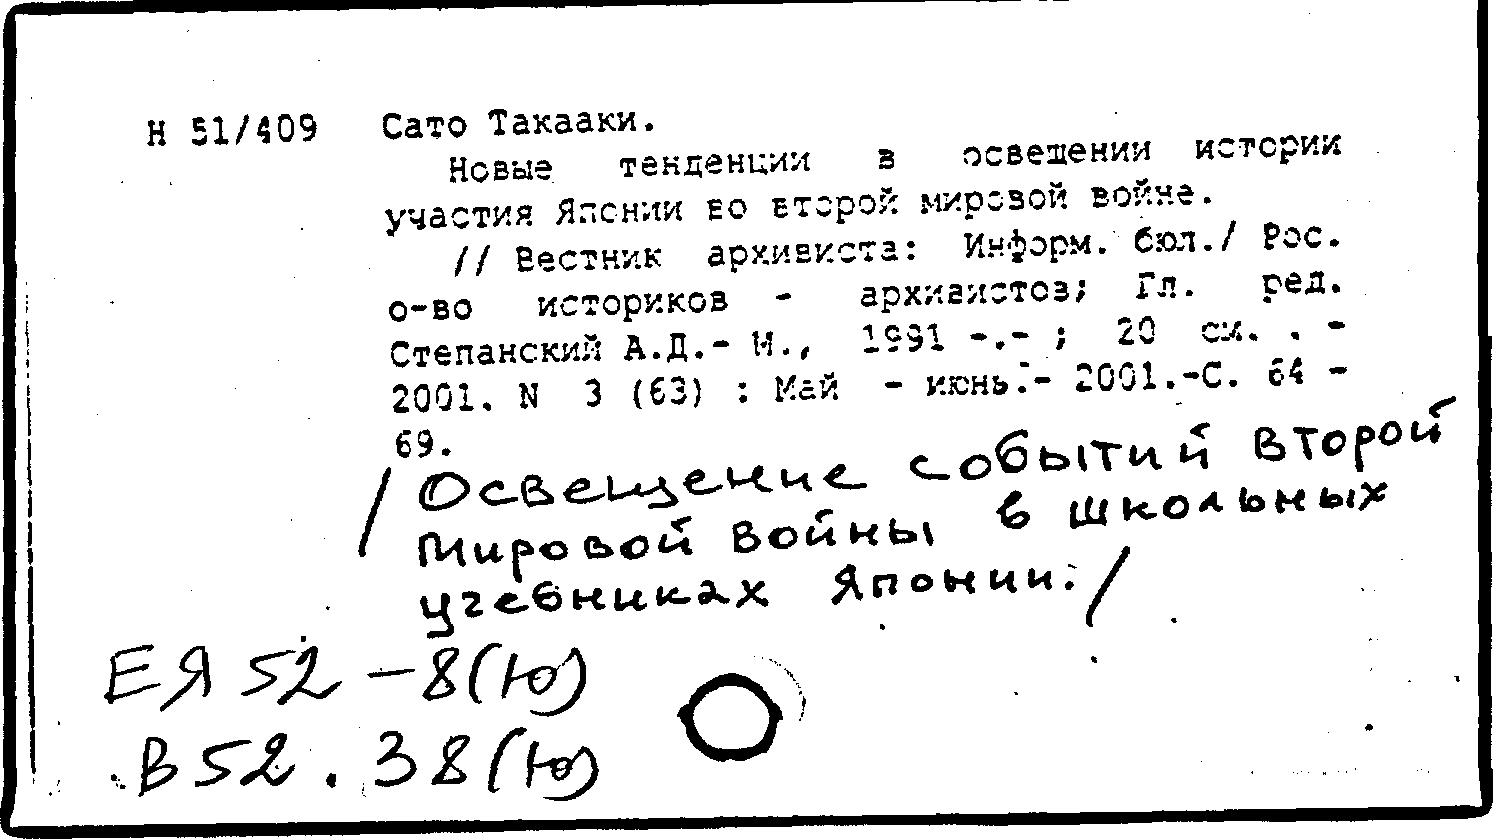 Н 51/409 Сато Такааки.
Новые тенденции в освещении истории
участия Японии во второй мировой войне.
// Вестник архивиста: Информ. бюл./ Рос.
о-во историков - архивистов; Гл. ред.
Степанский А.Д.- М., 1991 -.- ; 20 см. . -
2001. N 3 (63) : Май - июнь.- 2001.-С. 64 -
69.
/ Освещение событий второй
мировой войны в школьных
учебниках Японии. /
ЕЯ 52 - 8(Ю)
В 52 . 38(Ю)